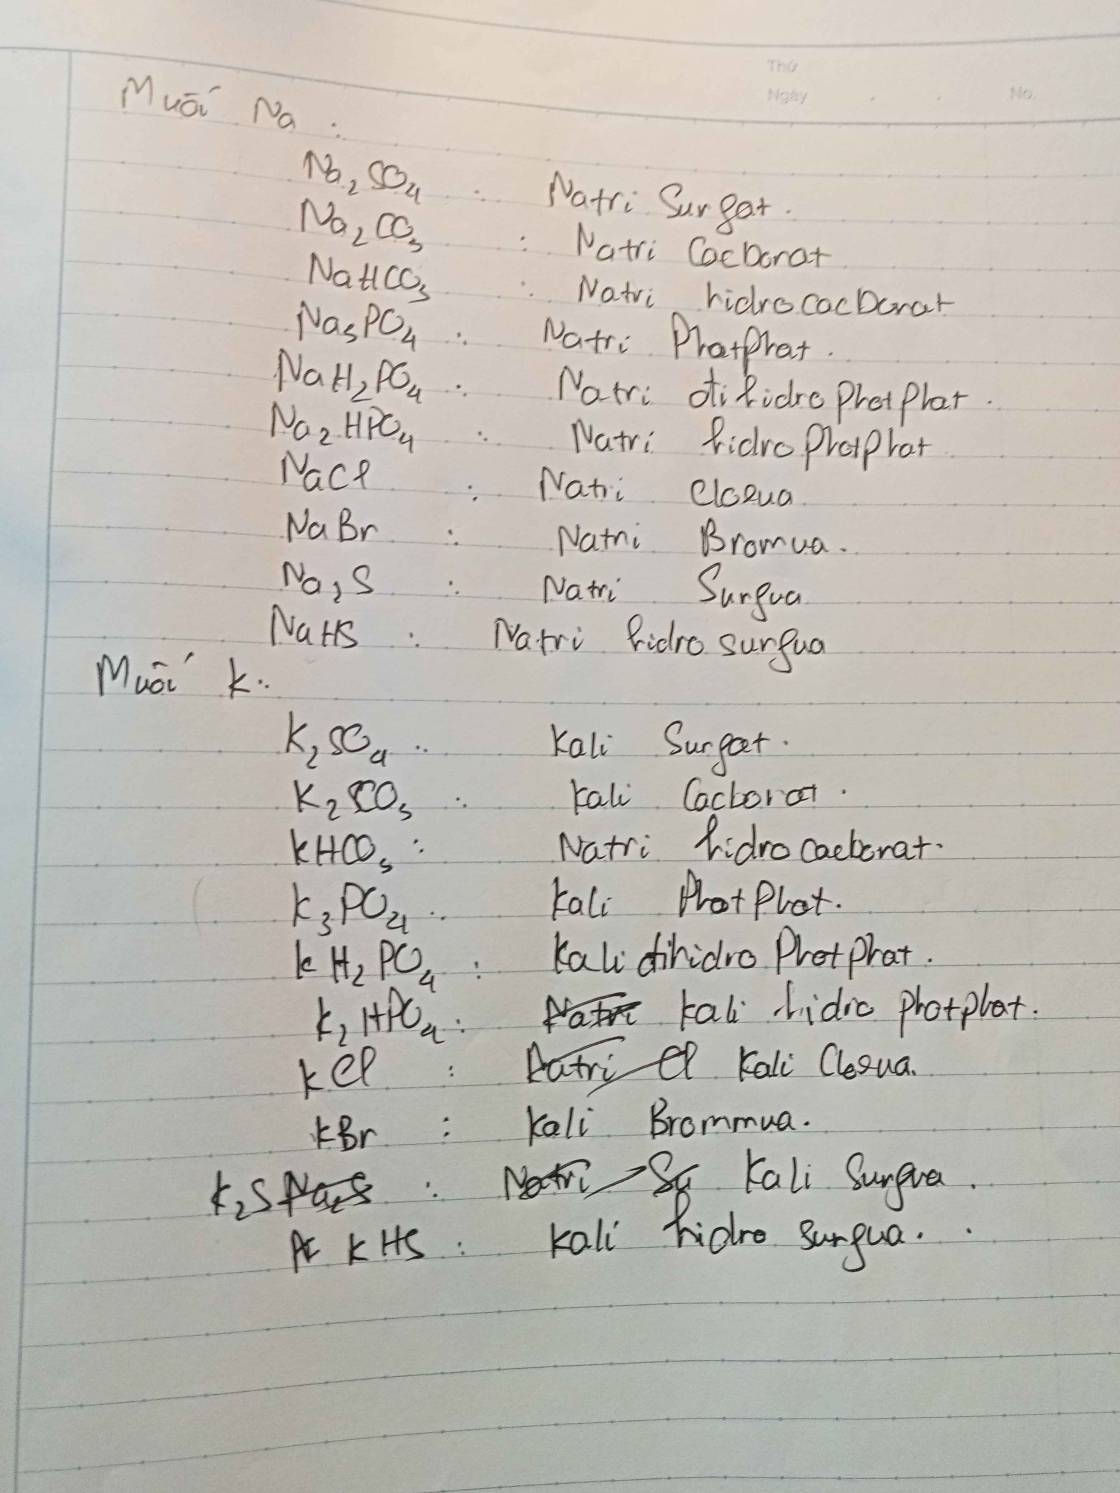 Thứ
Ngày . . No.
Muối Na :
Na₂SO₄ : Natri Surfat.
Na₂CO₃ : Natri Cacbonat
NaHCO₃ : Natri hidrocacbonat
Na₃PO₄ : Natri Photphat.
NaH₂PO₄ : Natri đihidro photphat.
Na₂HPO₄ : Natri hidro photphat
NaCl : Natri Clorua
NaBr : Natri Bromua.
Na₂S : Natri Surfua
NaHS : Natri hidro surfua
Muối K:
K₂SO₄ : Kali Surfat.
K₂CO₃ : Kali Cacbonat.
KHCO₃ : Natri hidrocacbonat.
K₃PO₄ : Kali PhotPhat.
KH₂PO₄ : Kali đihidro PhotPhat.
K₂HPO₄ : Natri Kali hidro photphat.
KCl : Natri Cl Kali Clorua.
KBr : Kali Brommua.
K₂S Na₂S : Natri Kali Surfua.
KHS : Kali hidro surfua.